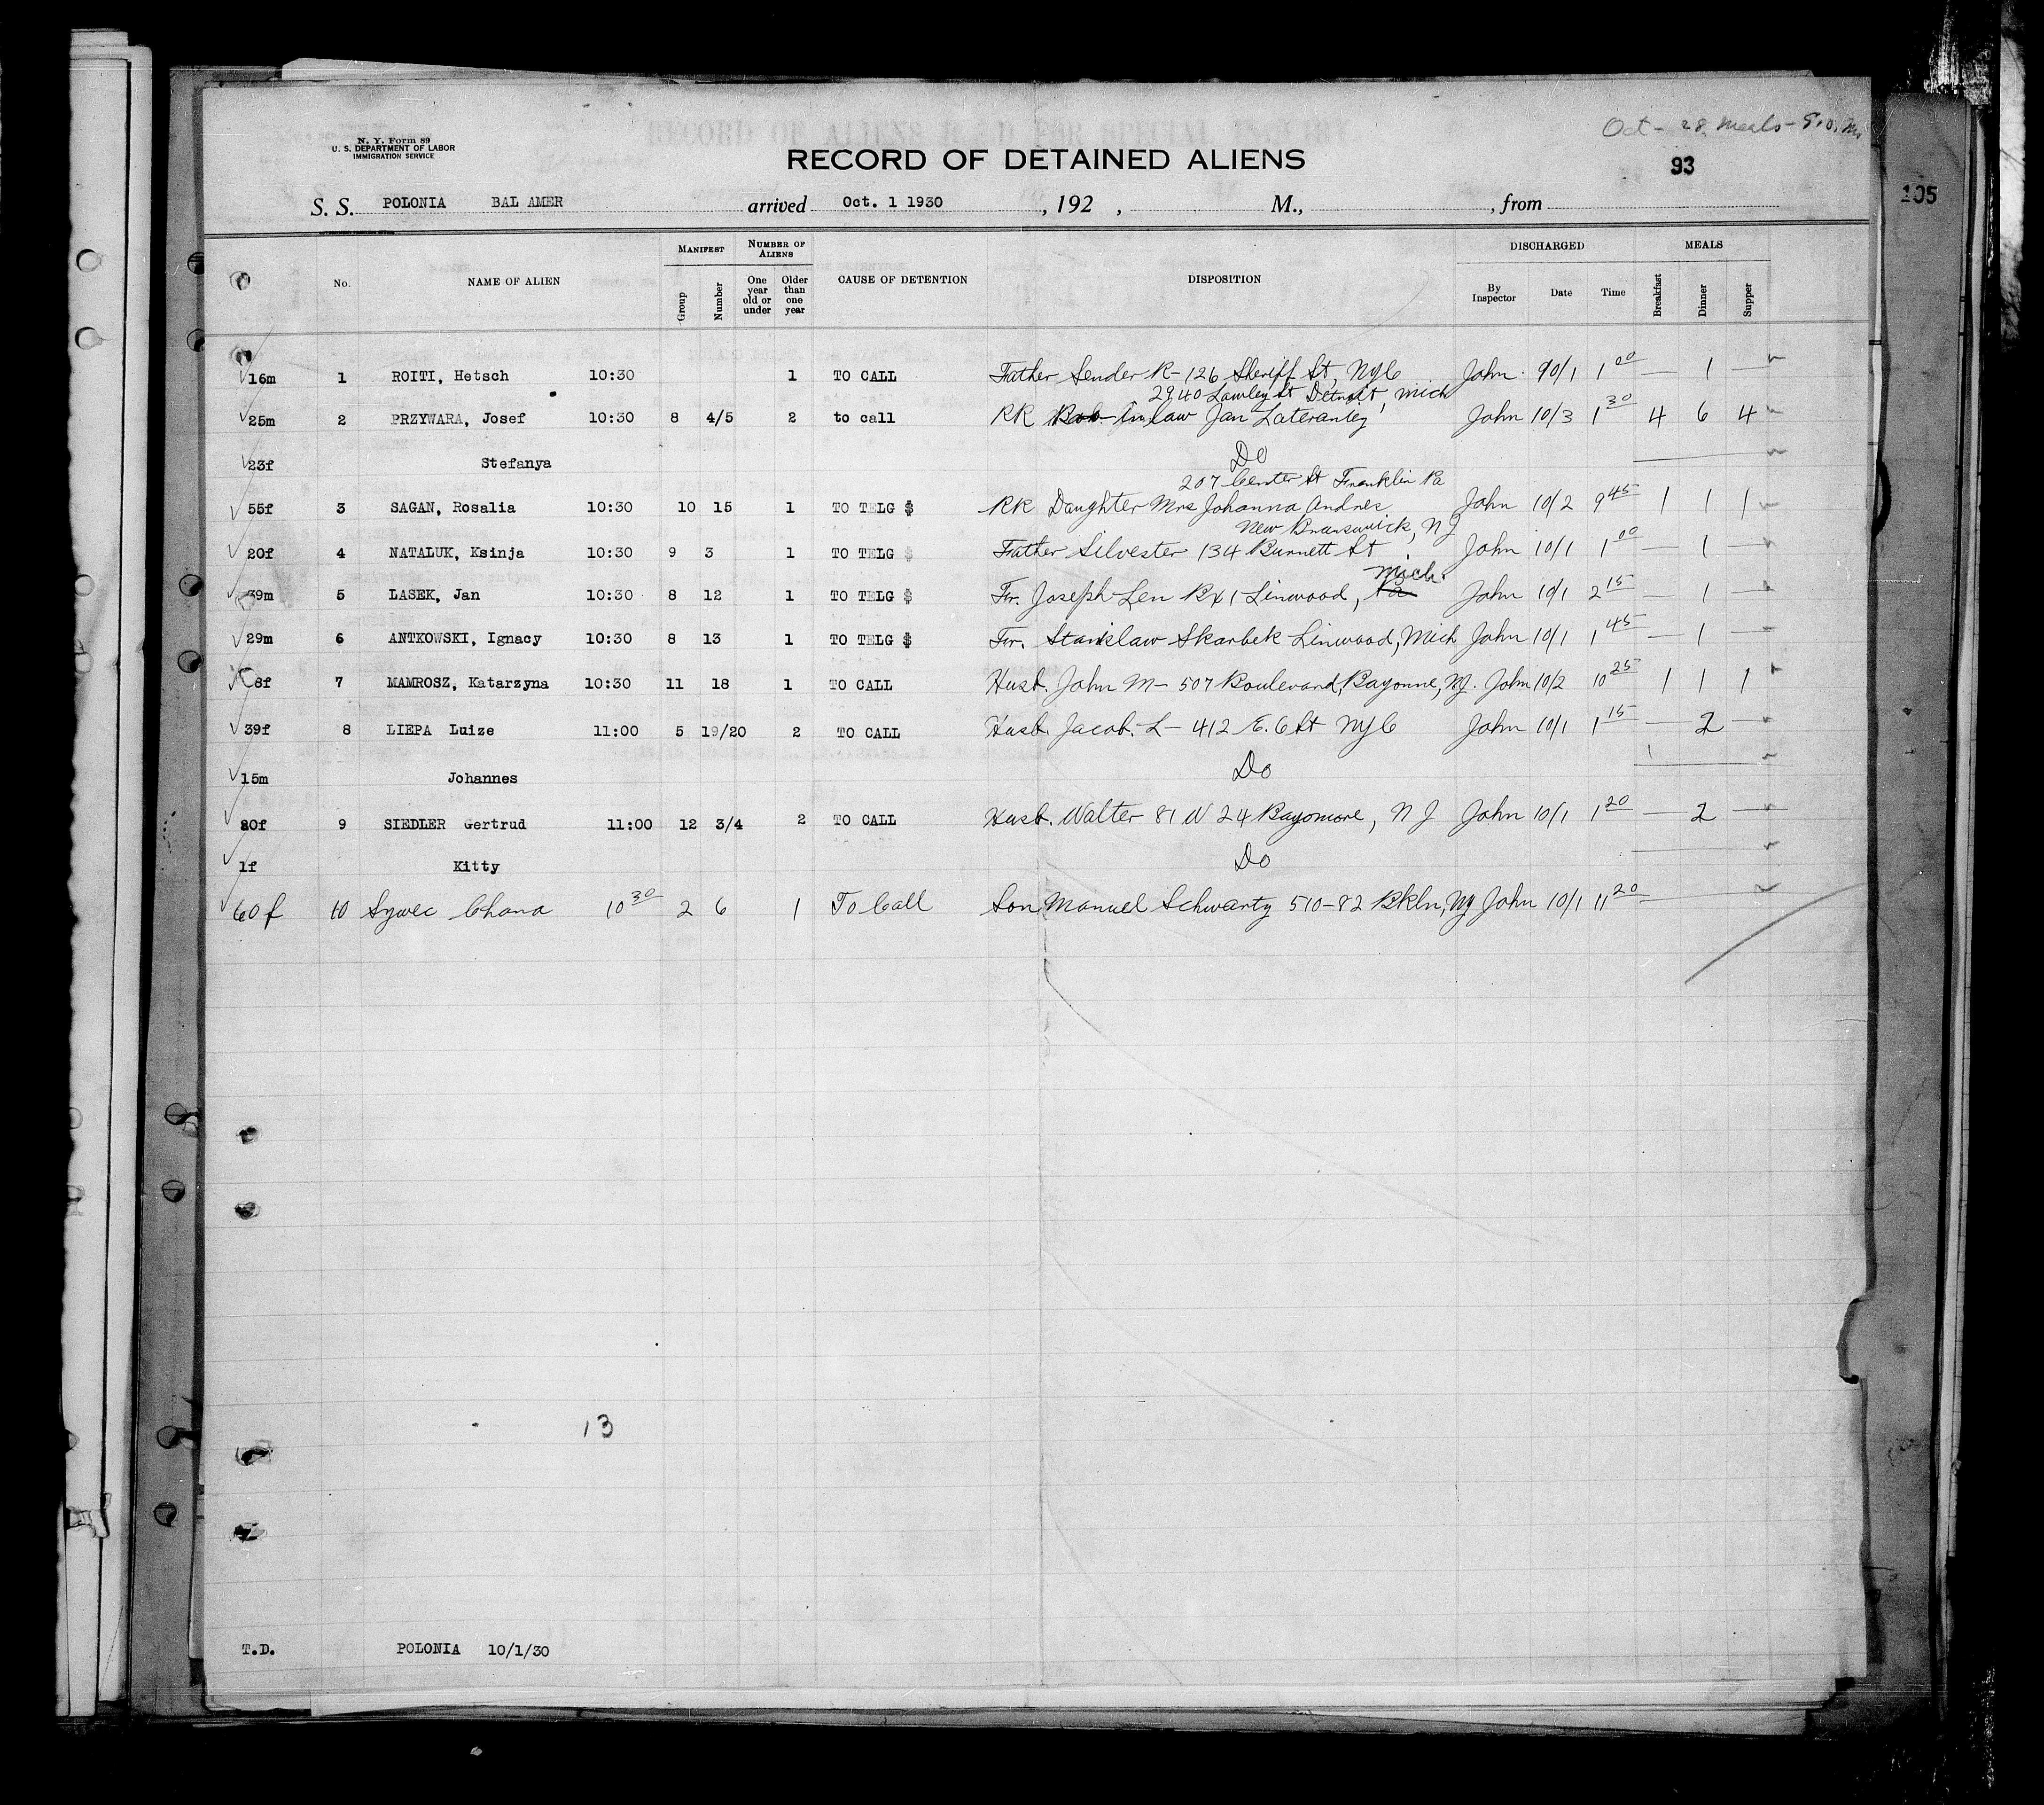 Oct - 28 Meals -
N. Y. Form 89
U. S. DEPARTMENT OF LABOR
IMMIGRATION SERVICE
RECORD OF DETAINED ALIENS
93
105
S. S. POLONIA BAL AMER arrived Oct. 1 1930 , 192 , M., , from
MANIFEST NUMBER OF ALIENS DISCHARGED MEALS
No. NAME OF ALIEN Group Number One year old or under Older than one year CAUSE OF DETENTION DISPOSITION By Inspector Date Time Breakfast Dinner Supper
16m 1 ROITI, Hetsch 10:30 1 TO CALL Father Sender R- 126 Sheriff St, NYC John 90/1 1 00 — 1 —
2940 Lawley St Detroit, Mich
25m 2 PRZYWARA, Josef 10:30 8 4/5 2 to call RR in law Jan John 10/3 1 30 4 6 4
23f Stefanya Do
207 Center St Franklin Pa
55f 3 SAGAN, Rosalia 10:30 10 15 1 TO TELG $ RR Daughter Mrs Johanna Andres John 10/2 9 45 1 1 1
New Brunswick, NJ
20f 4 NATALUK, Ksinja 10:30 9 3 1 TO TELG $ Father Silvester 134 Burnett St John 10/1 1 00 — 1 —
Mich.
39m 5 LASEK, Jan 10:30 8 12 1 TO TELG $ Fr. Joseph Len Rx 1 Linwood, Pa John 10/1 2 15 — 1 —
29m 6 ANTKOWSKI, Ignacy 10:30 8 13 1 TO TELG $ Fr. Stanislaw Skarbek Linwood, Mich John 10/1 1 45 — 1 —
8f 7 MAMROSZ, Katarzyna 10:30 11 18 1 TO CALL Husb. John M- 507 Boulevard, Bayonne, NJ. John 10/2 10 25 1 1 1
39f 8 LIEPA Luize 11:00 5 19/20 2 TO CALL Husb. Jacob. L- 412 E. 6 St NYC John 10/1 1 15 — 2 —
15m Johannes Do
20f 9 SIEDLER Gertrud 11:00 12 3/4 2 TO CALL Husb. Walter 81 W 24 Bayonne, N J John 10/1 1 20 — 2 —
1f Kitty Do
60f 10 Sywec Chana 10 30 2 6 1 To Call Son Manuel Schwartz 510-82 Bkln, NY John 10/1 11 20
13
T.D. POLONIA 10/1/30